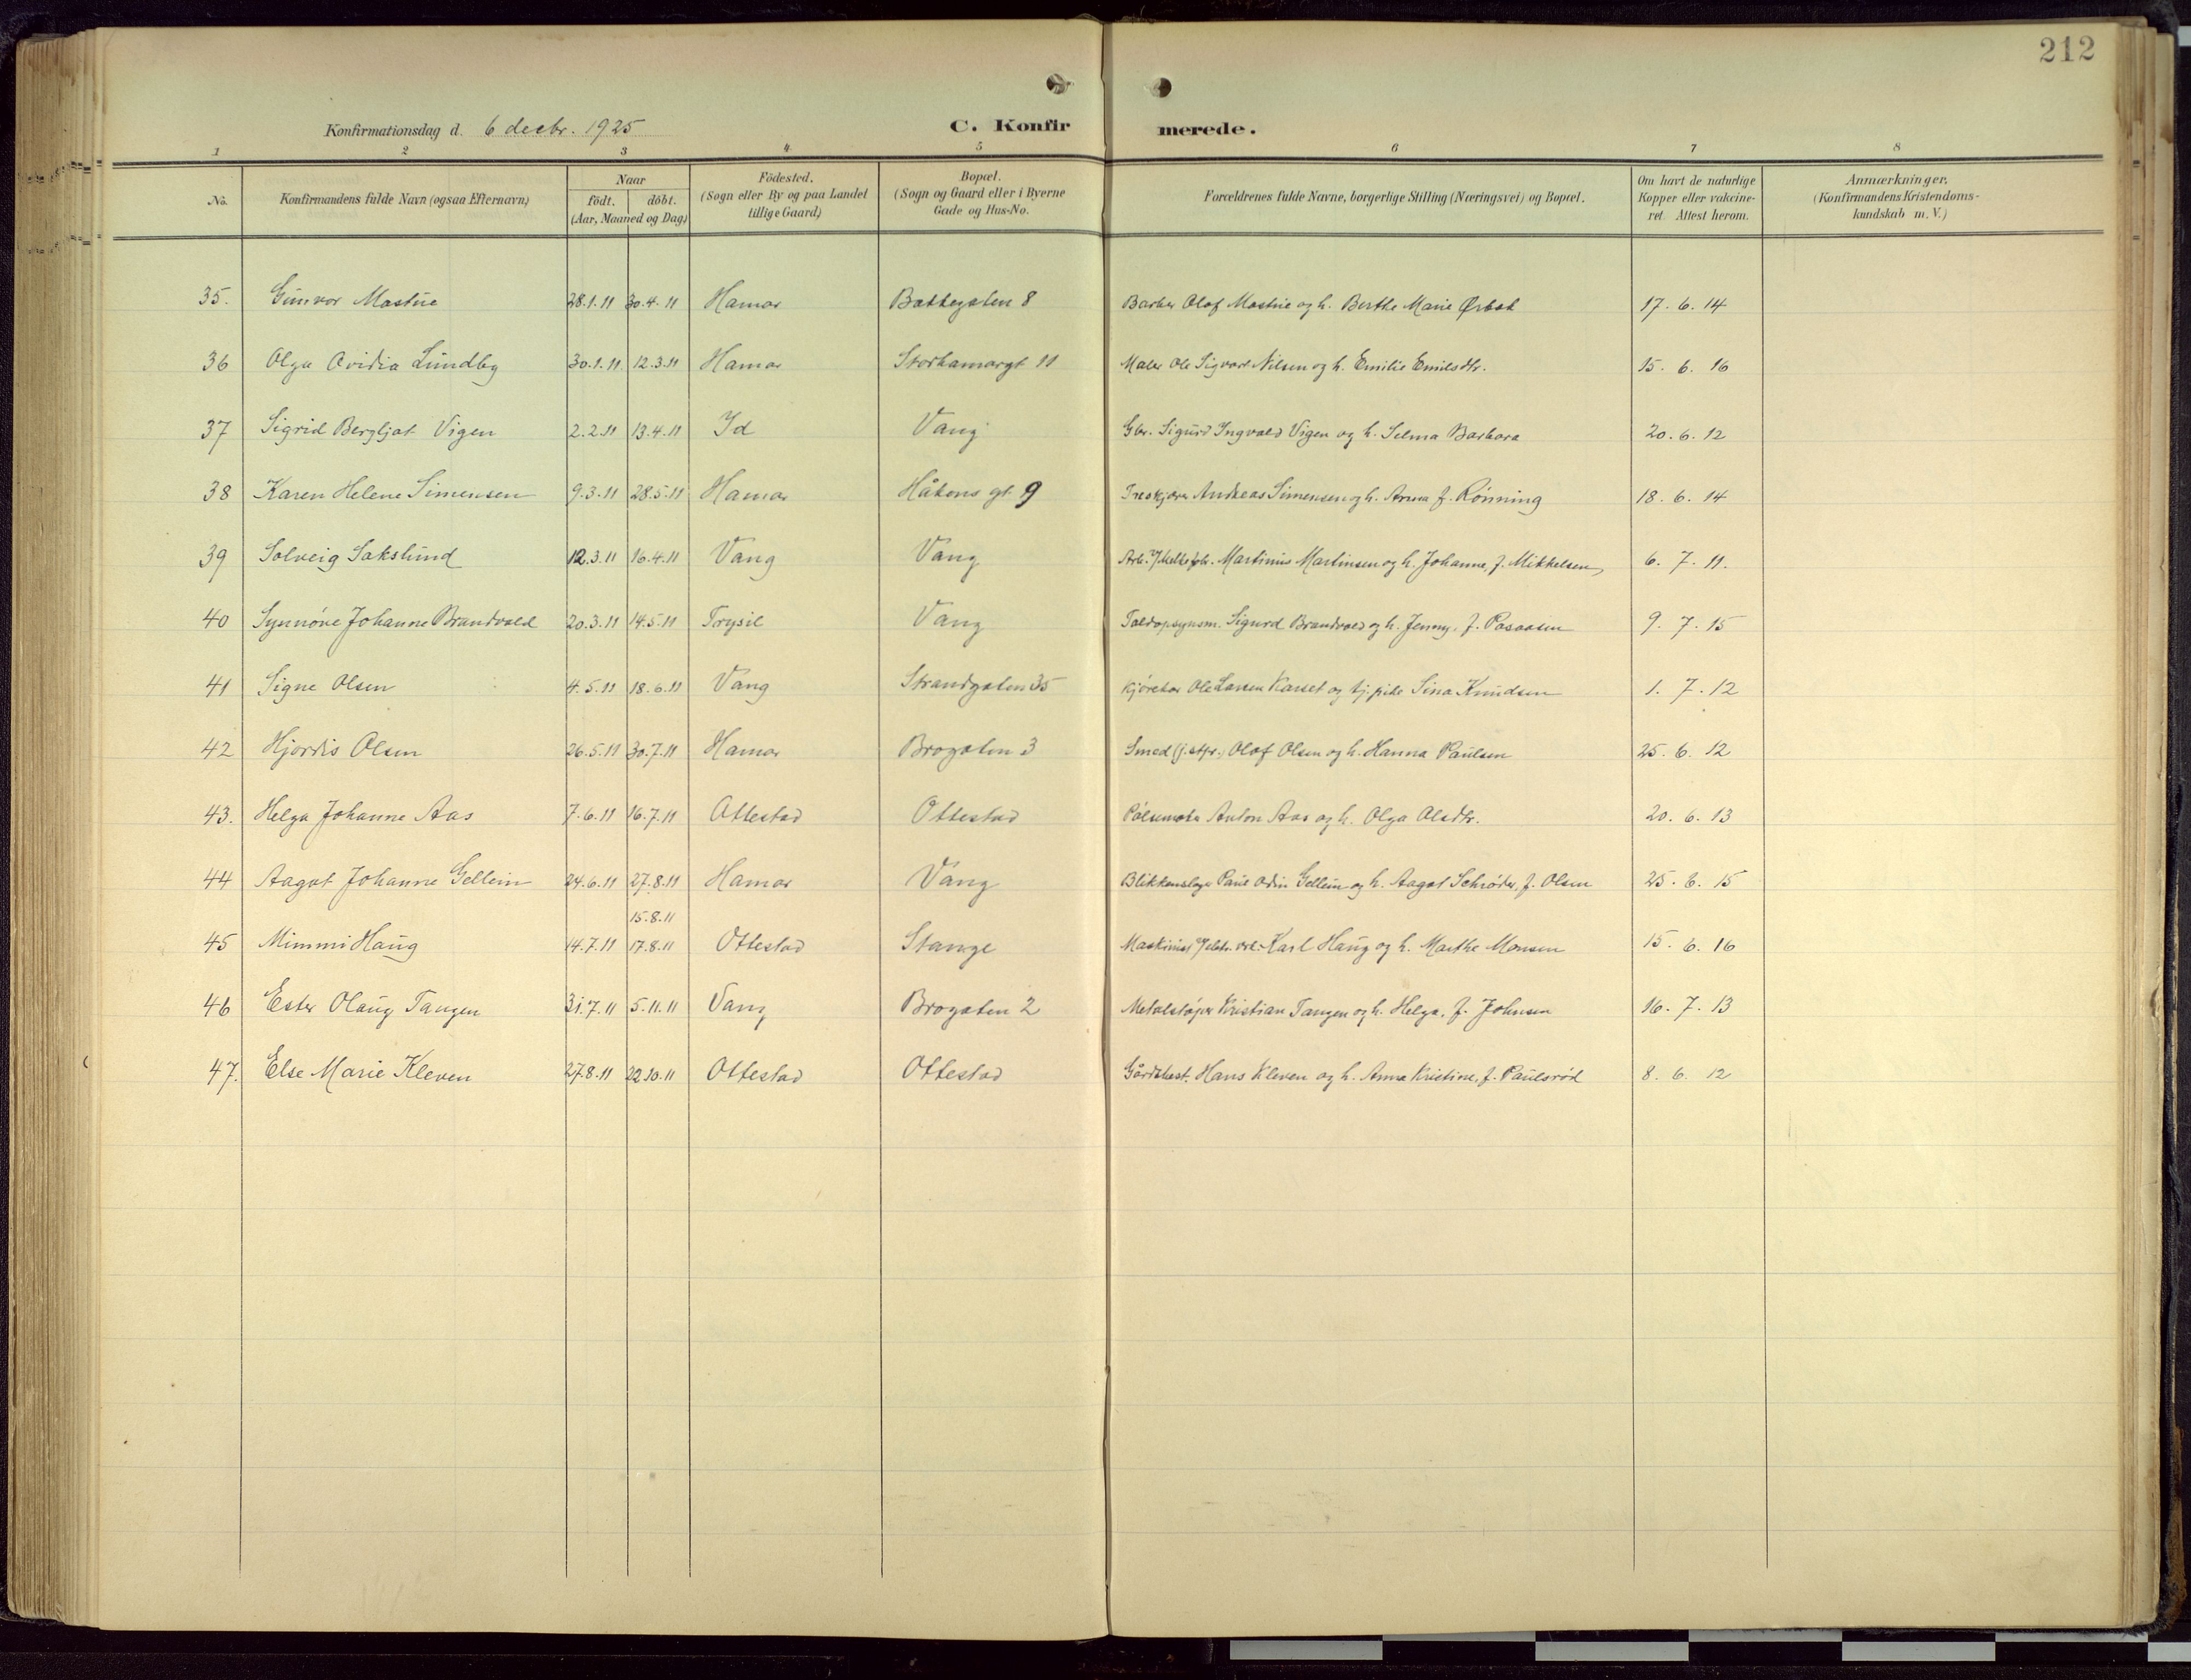 212
Konfirmationsdag d. 6 decbr. 1925
C. Konfir merede.
1 2 3 4 5 6 7 8
No. Konfirmandens fulde Navn (ogsaa Efternavn) Naar födt. döbt. (Aar, Maaned og Dag) Födested. (Sogn eller By og paa Landet tillige Gaard) Bopæl. (Sogn og Gaard eller i Byerne Gade og Hus-No. Forældrenes fulde Navne, borgerlige Stilling (Næringsvei) og Bopæl. Om havt de naturlige Kopper eller vakcineret. Attest herom. Anmærkninger. (Konfirmandens Kristendomskundskab m. V.)
35. Gunvor Mastue 28.1.11 30.4.11 Hamar Bakkegaten 8 Barber Olaf Mastue og h. Berthe Marie 17. 6. 14
36 Olga Ovidia Lundby 30.1.11 12.3.11 Hamar Storhamargt 11 Maler Ole Sigvart Nilsen og h. Emilie Emilsdtr. 15. 6. 16
37 Sigrid Bergljot Vigen 2.2.11 13.4.11 Id Vang Gbr. Sigurd Ingvald Vigen og h. Selma Barbara 20. 6. 12
38 Karen Helene Simensen 9.3.11 28.5.11 Hamar Håkons gt. 9 Treskjærer Andreas Simensen og h. Anna f. Rönning 18. 6. 14
39 Solveig Sakslund 12.3.11 16.4.11 Vang Vang Arb. Martinius Martinsen og h. Johanne, f. Mikkelsen 6. 7. 11.
40 Synnöve Johanne Brandvold 20.3.11 14.5.11 Trysil Vang Toldopsynsm. Sigurd Brandvold og h. Jenny, f. 9. 7. 15
41 Signe Olsen 4.5.11 18.6.11 Vang Strandgaten 35 Kjörekar Ole Larsen Karset og tj.pike Sina Knudsen 1. 7. 12
42 Hjördis Olsen 26.5.11 30.7.11 Hamar Brogaten 3 Smed Olaf Olsen og h. Hanna Paulsen 25. 6. 12
43. Helga Johanne Aas 7.6.11 16.7.11 Ottestad Ottestad Pölsemaker Anton Aas og h. Olga Olsdtr. 20. 6. 13
44 Aagot Johanne Gellein 24.6.11 27.8.11 Hamar Vang Blikkenslager Paul Odin Gellein og h. Aagot Schröder, f. Olsen 25. 6. 15
15.8.11
45 Mimmi Haug 14.7.11 17.8.11 Ottestad Stange Maskinist Karl Haug og h. Marthe Monsen 15. 6. 16
46 Ester Olaug Tangen 31.7.11 5.11.11 Vang Brogaten 2 Metalstöper Kristian Tangen og h. Helga, f. Johnsen 16. 7. 13
47. Else Marie Kleven 27.8.11 22.10.11 Ottestad Ottestad Gårdbest. Hans Kleven og h. Anna Kristine, f. Paulsröd 8. 6. 12